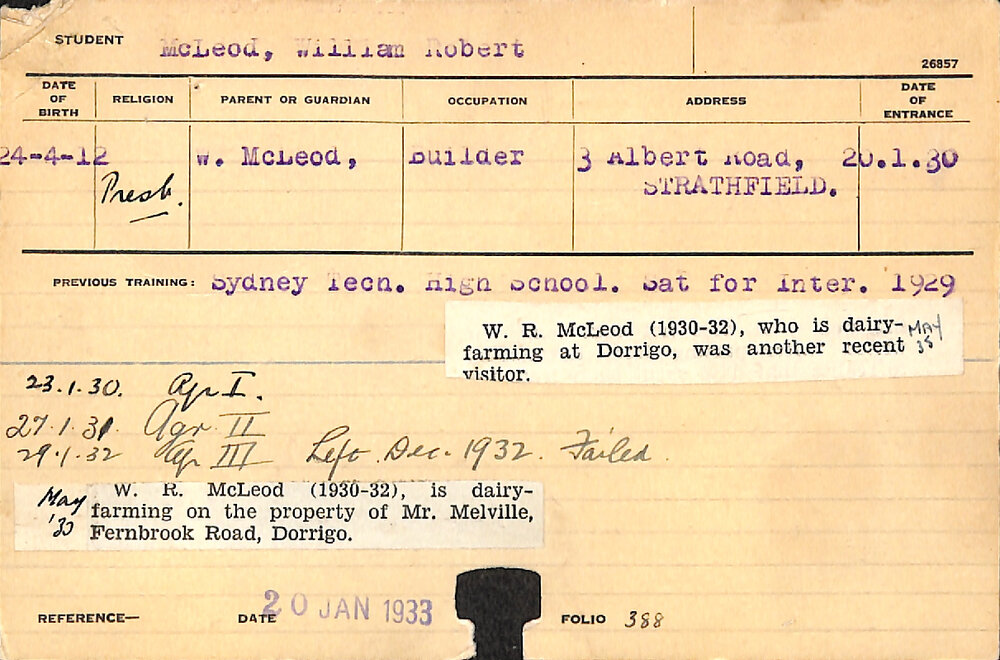 STUDENT McLeod, William Robert
26857
DATE OF BIRTH RELIGION PARENT OR GUARDIAN OCCUPATION ADDRESS DATE OF ENTRANCE
24-4-12 W. McLeod, Builder 3 Albert Road, 20.1.30
Presb. STRATHFIELD.
PREVIOUS TRAINING: Sydney Tech. High School. Sat for Inter. 1929
W. R. McLeod (1930-32), who is dairy-
farming at Dorrigo, was another recent
visitor.
MAY
35
23.1.30. Agr I.
27.1.31. Agr II
29.1.32 Agr III Left Dec. 1932. Failed.
May
W. R. McLeod (1930-32), is dairy-
farming on the property of Mr. Melville,
Fernbrook Road, Dorrigo.
REFERENCE— DATE 20 JAN 1933 FOLIO 388